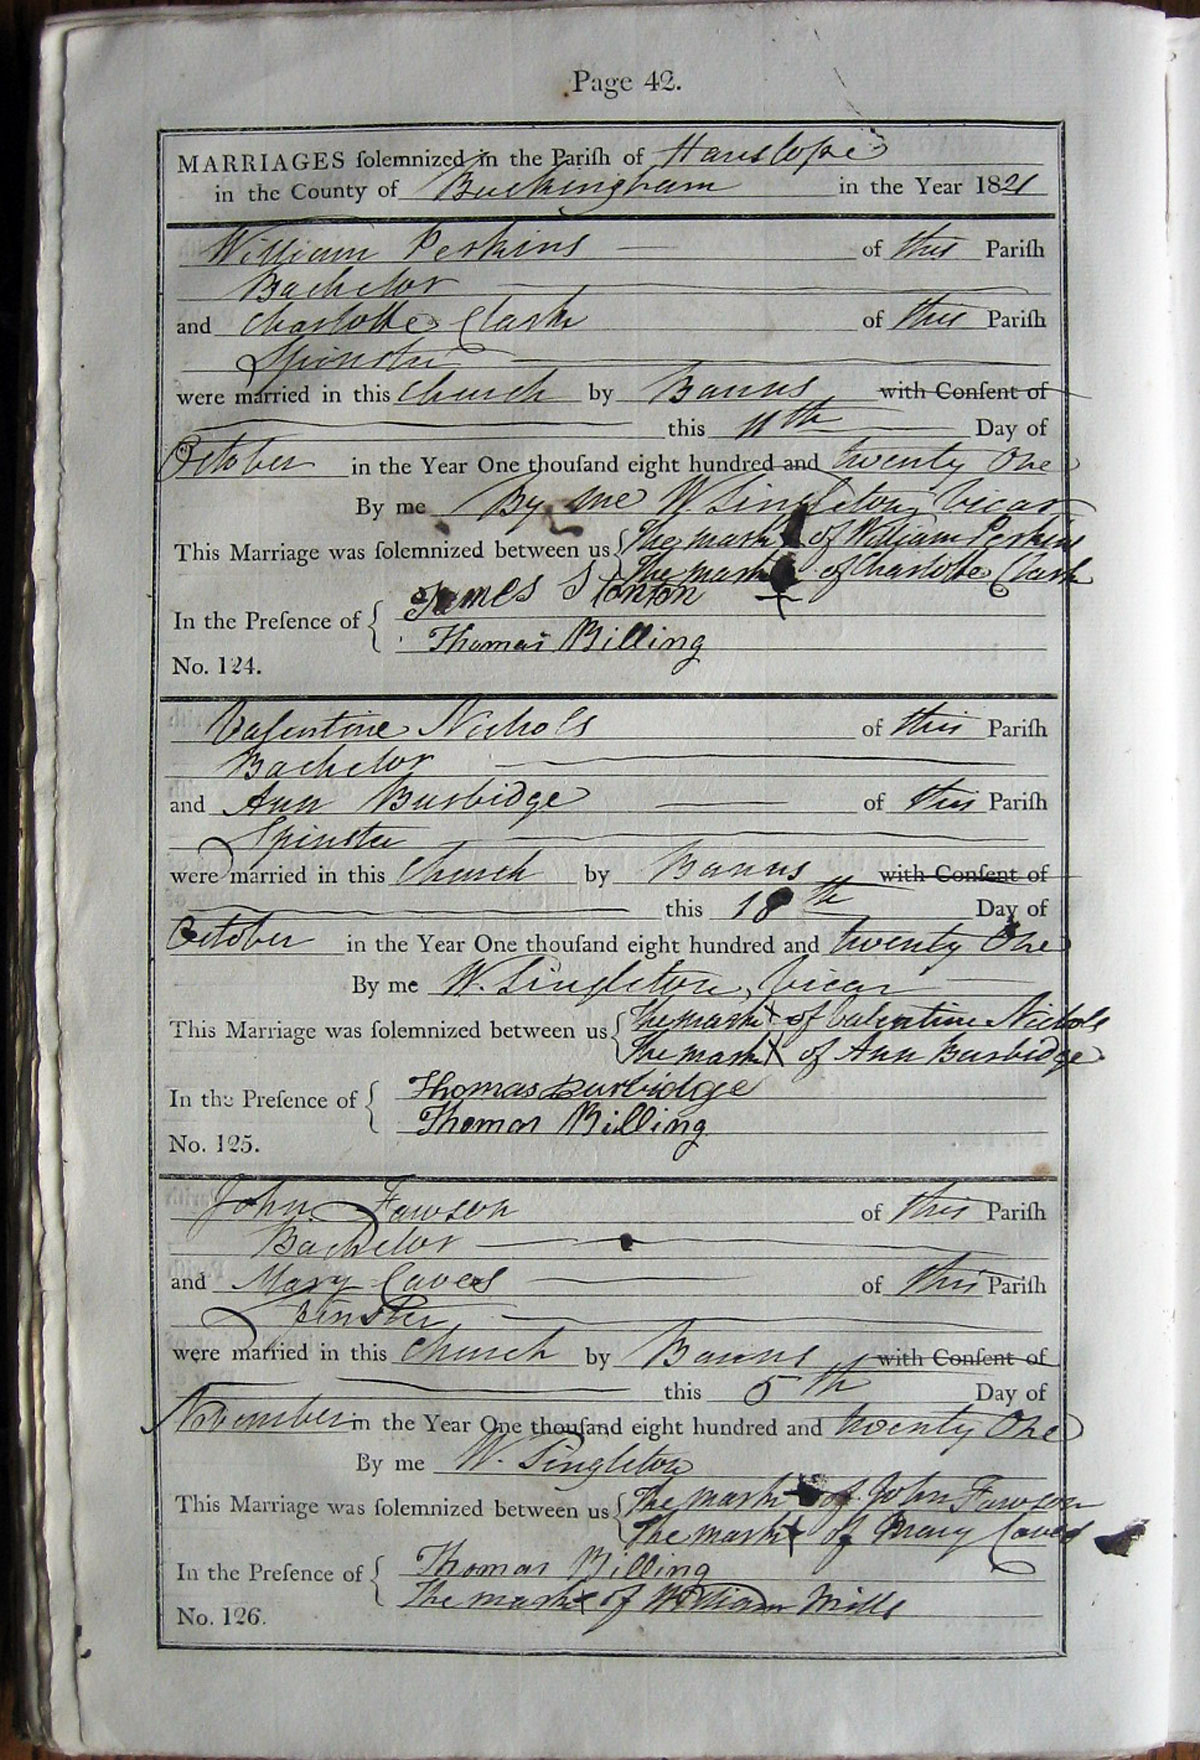 Page 42.
MARRIAGES ſolemnized in the Pariſh of Hanslope
in the County of Buckingham in the Year 1821
William Perkins of this Pariſh
Bachelor
and Charlotte Clark of this Pariſh
Spinster
were married in this Church by Banns with Conſent of
this 11th Day of
October in the Year One thouſand eight hundred and twenty One
By me By me W. Singleton, Vicar
This Marriage was ſolemnized between us The mark of William Perkins
The mark X of Charlotte Clark
In the Preſence of James Stanton
Thomas Billing
No. 124.
Valentine Nichols of this Pariſh
Bachelor
and Ann Burbidge of this Pariſh
Spinster
were married in this Church by Banns with Conſent of
this 18th Day of
October in the Year One thouſand eight hundred and twenty One
By me W. Singleton, Vicar
This Marriage was ſolemnized between us The mark X of Valentine Nichols
The mark X of Ann Burbidge
In the Preſence of Thomas Burbidge
Thomas Billing
No. 125.
John Fawson of this Pariſh
Bachelor
and Mary Caves of this Pariſh
Spinster
were married in this Church by Banns with Conſent of
this 5th Day of
November in the Year One thouſand eight hundred and twenty One
By me W. Singleton
This Marriage was ſolemnized between us The mark X of John Fawson
The mark X of Mary Caves
In the Preſence of Thomas Billing
The mark X of William Mills
No. 126.